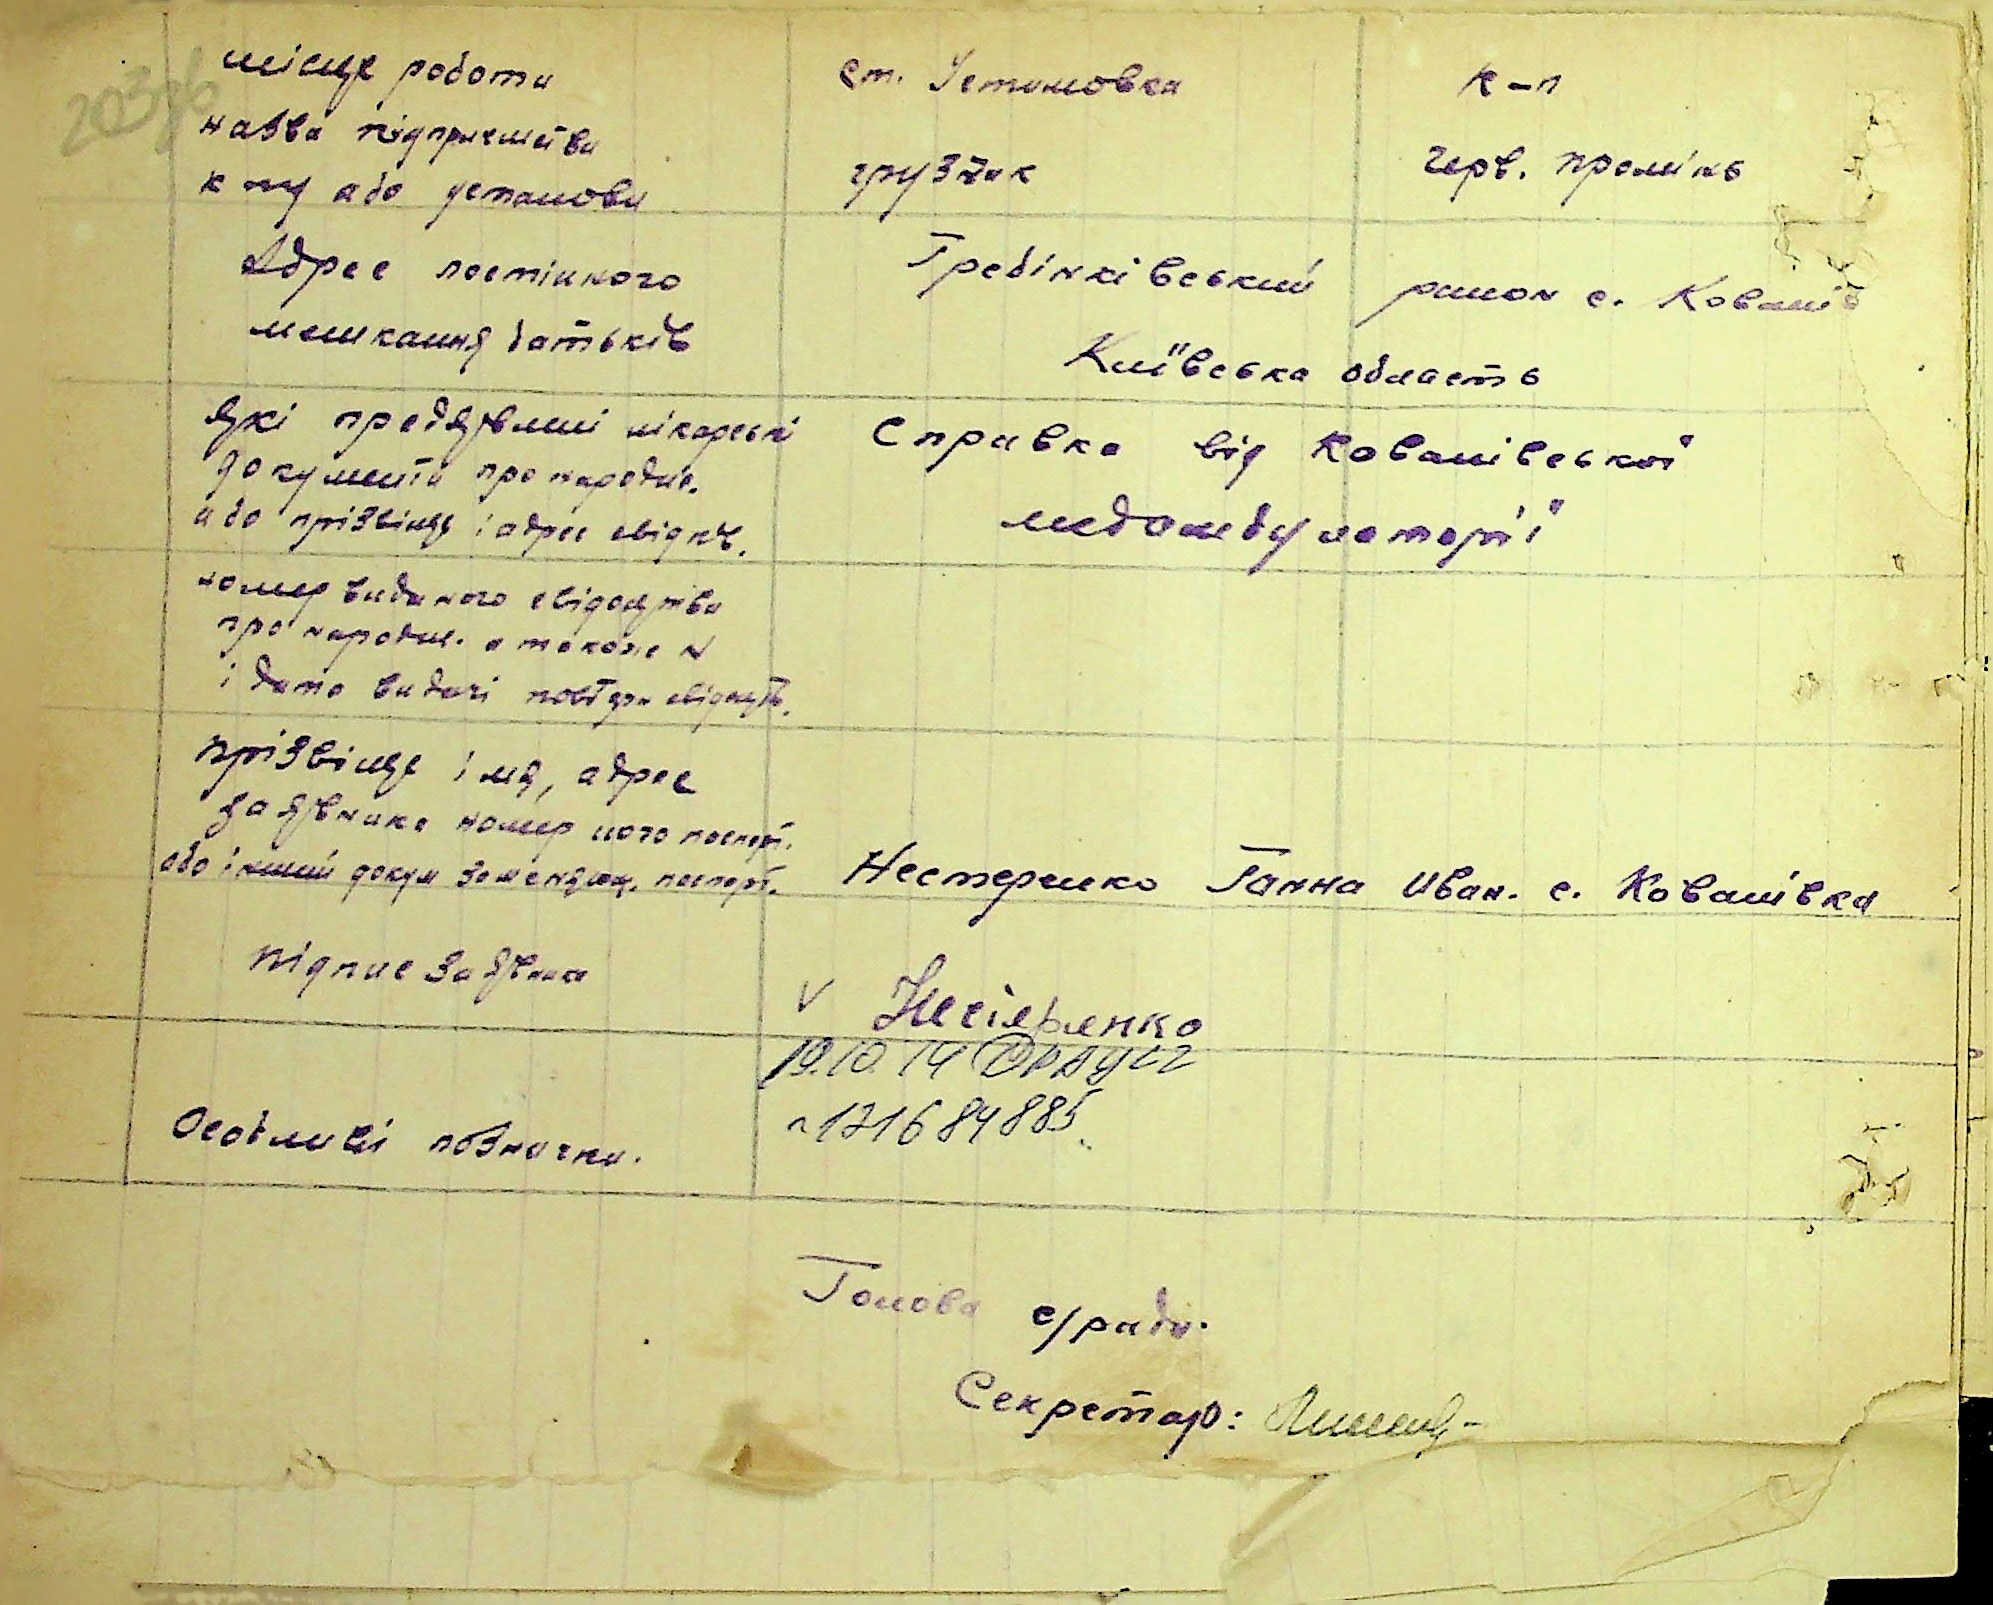 203зв
місце роботи
назва підприємства
к-пу або установи
ст. Устимовка
грузчик
к-п
Черв. промінь
Адрес постійного
мешкання батьків
Гребінківський район с. Ковалів
Київська область
Які пред'явлені лікарські
документи про народже.
або прізвище і адрес свідків.
Справка від Ковалівської
медамбулаторії
номер виданого свідоцтва
про народже. а також N
і дата видачі повторн свідоцтв.
прізвище імя, адрес
заявника номер його паспорт.
або інший докум заменяющ. паспорт.
Нестеренко Ганна Иван. с. Ковалівка
підпис заявника
V Нестеренко
19.10.14
1216 84 885
Особливі позначки.
Голова с/ради.
Секретар: